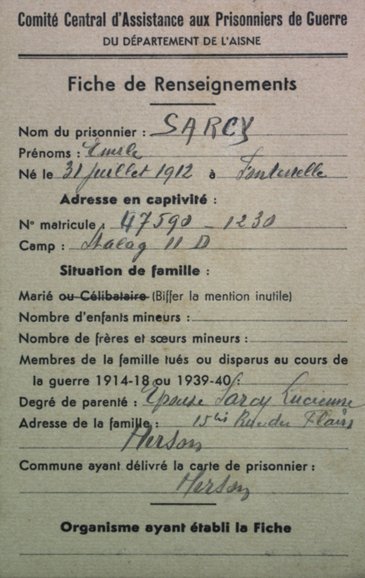 Comité Central d'Assistance aux Prisonniers de Guerre
DU DÉPARTEMENT DE L'AISNE
Fiche de Renseignements
Nom du prisonnier : SARCY
Prénoms : Emile
Né le 31 juillet 1912 à
Adresse en captivité :
N° matricule : 47590 - 1230
Camp : Stalag II D
Situation de famille :
Marié ou Célibataire (Biffer la mention inutile)
Nombre d'enfants mineurs :
Nombre de frères et sœurs mineurs :
Membres de la famille tués ou disparus au cours de
la guerre 1914-18 ou 1939-40 :
Degré de parenté : Epouse Sarcy Lucienne
Adresse de la famille : 15bis Rue du
Herson
Commune ayant délivré la carte de prisonnier :
Herson
Organisme ayant établi la Fiche